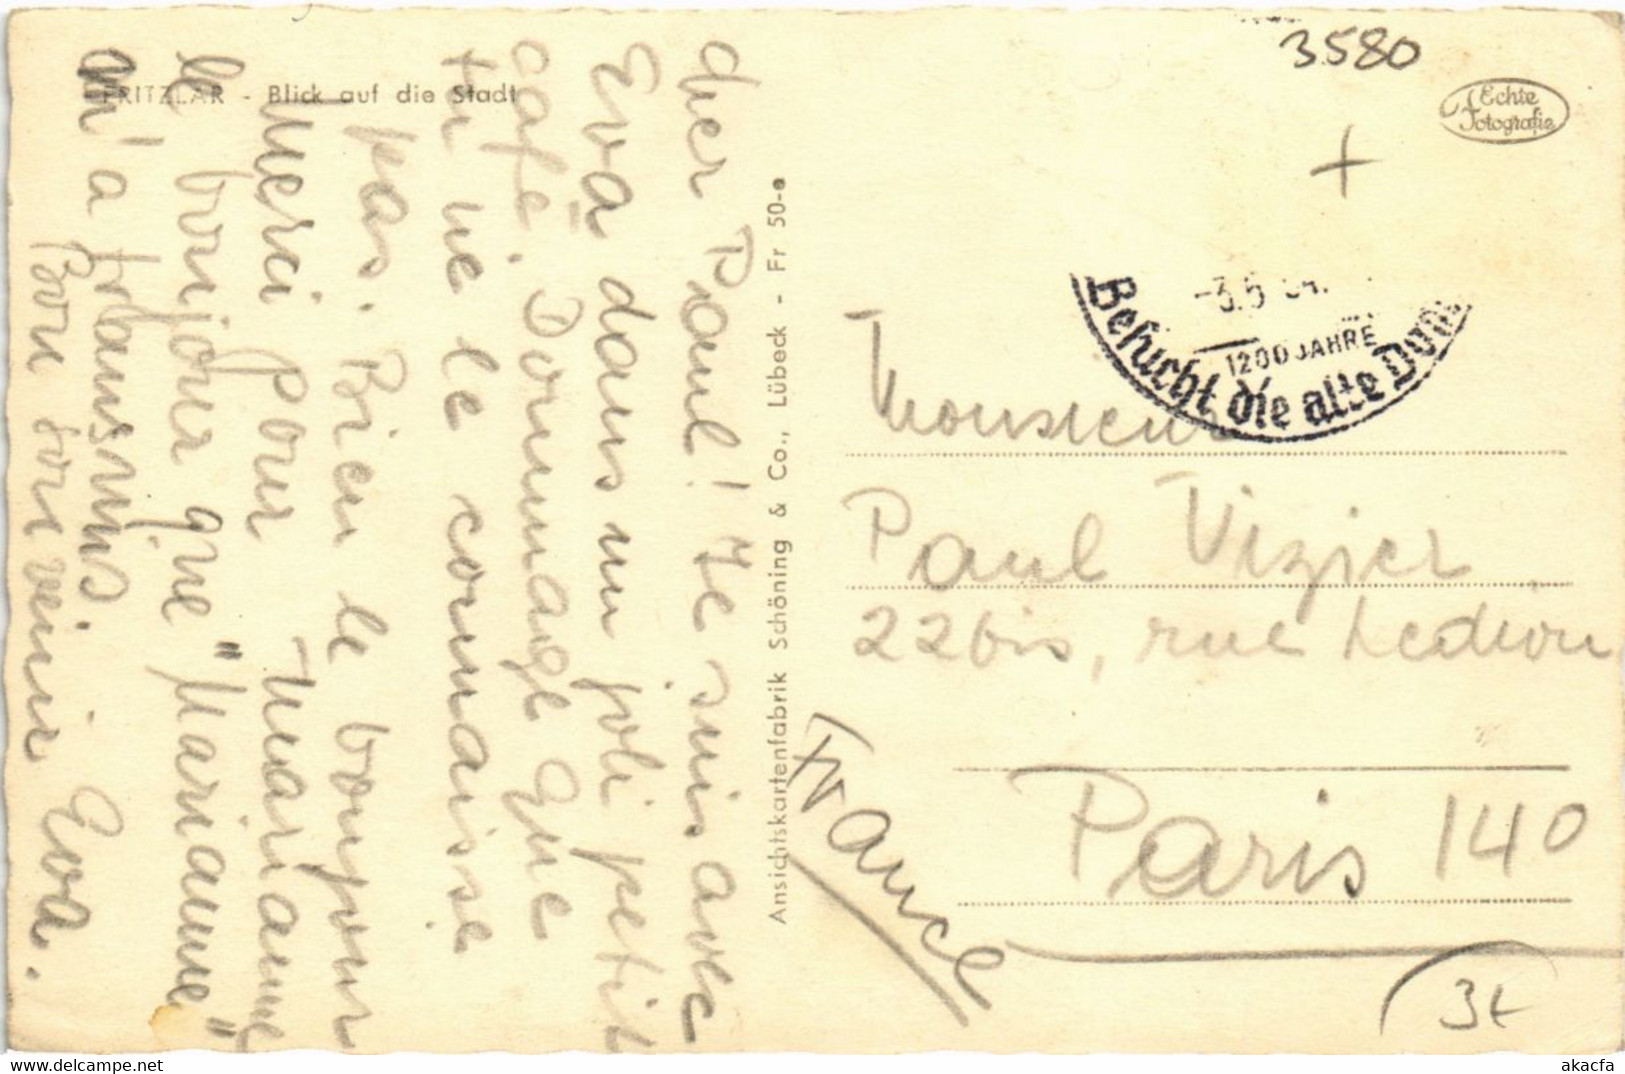 FRITZLAR - Blick auf die Stadt
cher Paul! Je suis avec
Eva dans un joli petit
café. Dommage que
tu ne le connaisse
pas. Bien le bonjour
Merci pour Marianne
le bonjour que "Marianne"
m'a transmis.
Bon souvenir Eva.
Ansichtskartenfabrik Schöning & Co., Lübeck - Fr 50-e
3580
Echte
Fotografie
+
-3.5 54.
1200 JAHRE
Besucht die alte Dom
Monsieur
Paul Vizier
22bis, rue Ledion
Paris 140
France
3t
akacfa